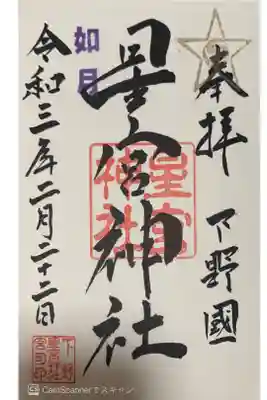 奉拝 下野國
星宮神社
星宮神社
如月
令和三年二月二十二日
下野
CamScannerでスキャン